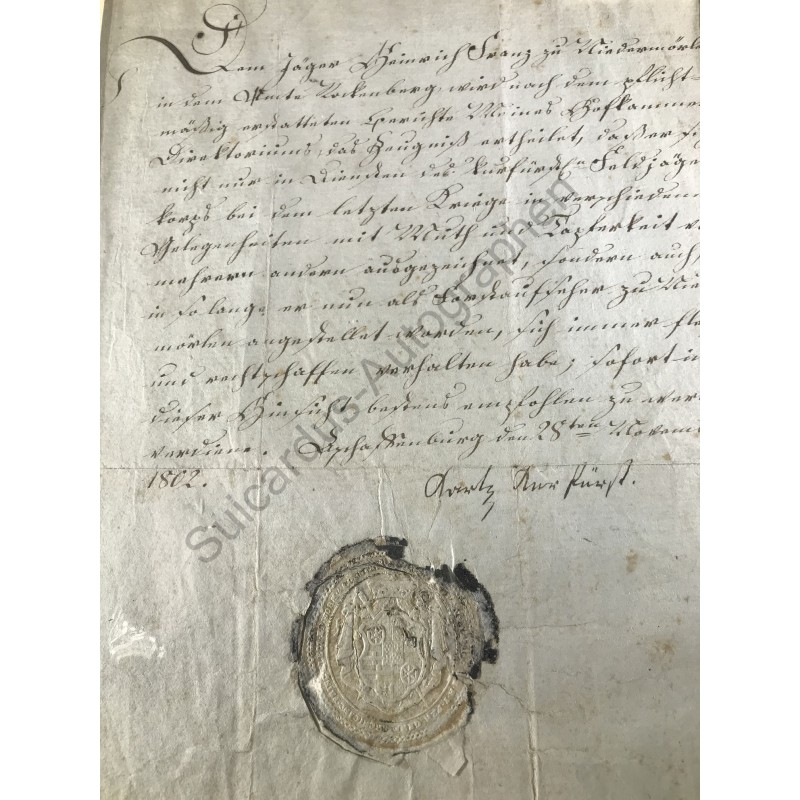 Dem Jäger Heinrich Franz zu Niedermörle
in dem Amte Rockenberg, wird nach dem pflicht-
mäßig erstatteten Berichte Meines Hofkammer
Direktoriums, das Zeugniß ertheilet, daß er si
nicht nur in Diensten des kurfürstln Feldjäge
korps bei dem letzten Kriege in verschieden
Gelegenheiten mit Muth und Tapferkeit v
mehrern andern ausgezeichnet, sondern auch,
in so lange er nun als Forstaufseher zu Nie
mörlen angestellet worden, sich immer fle
und rechtschaffen verhalten habe; sofort in
dieser Hinsicht bestens empfohlen zu wer
verdiene. Aschaffenburg den 28ten Novem
1802.
Kurfürst.
Suicardus-Autographen